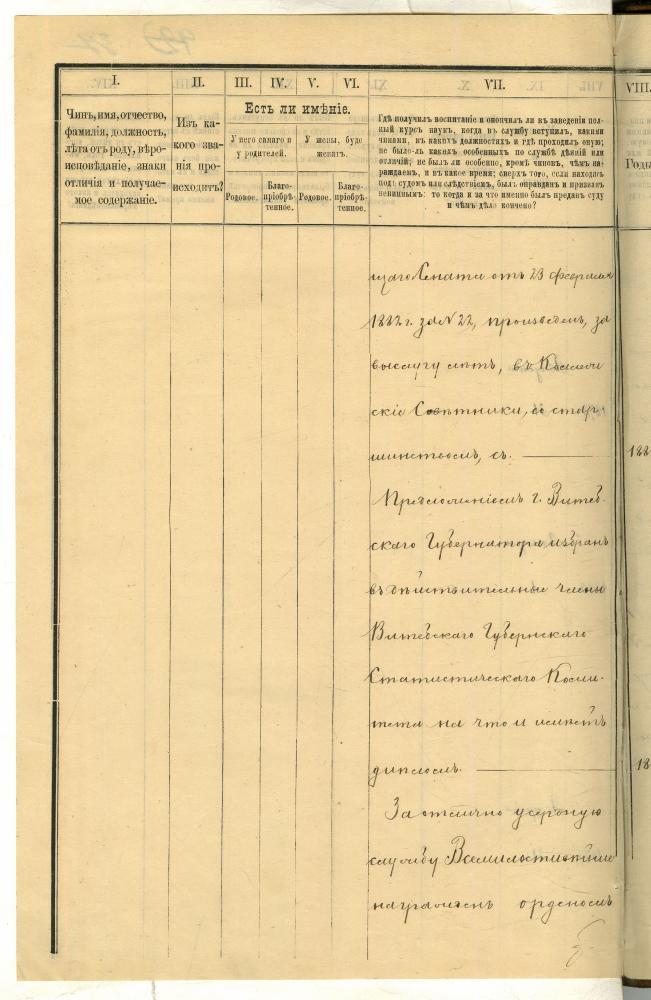 I. II. III. IV. V. VI. VII. VIII.
Чинъ, имя, отчество,
фамилія, должность,
лѣта отъ роду, вѣро-
исповѣданіе, знаки
отличія и получае-
мое содержаніе.
Изъ ка-
кого зва-
нія про-
исходитъ?
Есть ли имѣніе.
У него самаго и
у родителей.
У жены, буде
женатъ.
Родовое.
Благо-
пріобрѣ-
тенное.
Родовое.
Благо-
пріобрѣ-
тенное.
Гдѣ получилъ воспитаніе и окончилъ ли въ заведеніи пол-
ный курсъ наукъ, когда въ службу вступилъ, какими
чинами, въ какихъ должностяхъ и гдѣ проходилъ оную;
не было-ли какихъ особенныхъ по службѣ дѣяній или
отличій; не былъ ли особенно, кромѣ чиновъ, чѣмъ на-
раждаемъ, и въ какое время; сверхъ того, если находясь
подъ судомъ или слѣдствіемъ, былъ оправданъ и признанъ
невиннымъ: то когда и за что именно былъ преданъ суду
и чѣмъ дѣло кончено?
Годы
щаго Сената отъ 23 февраля
1882 г. за № 22, произведенъ, за
выслугу лѣтъ, въ Коллеж
скіе Совѣтники, со стар-
шинствомъ, съ.
188
Предложеніемъ г. Витеб-
скаго Губернатора избранъ
въ дѣйствительные члены
Витебскаго Губернскаго
Статистическаго Коми-
тета на что и имѣетъ
дипломъ.
18
За отлично усердную
службу Всемилостивѣйше
награжденъ орденомъ